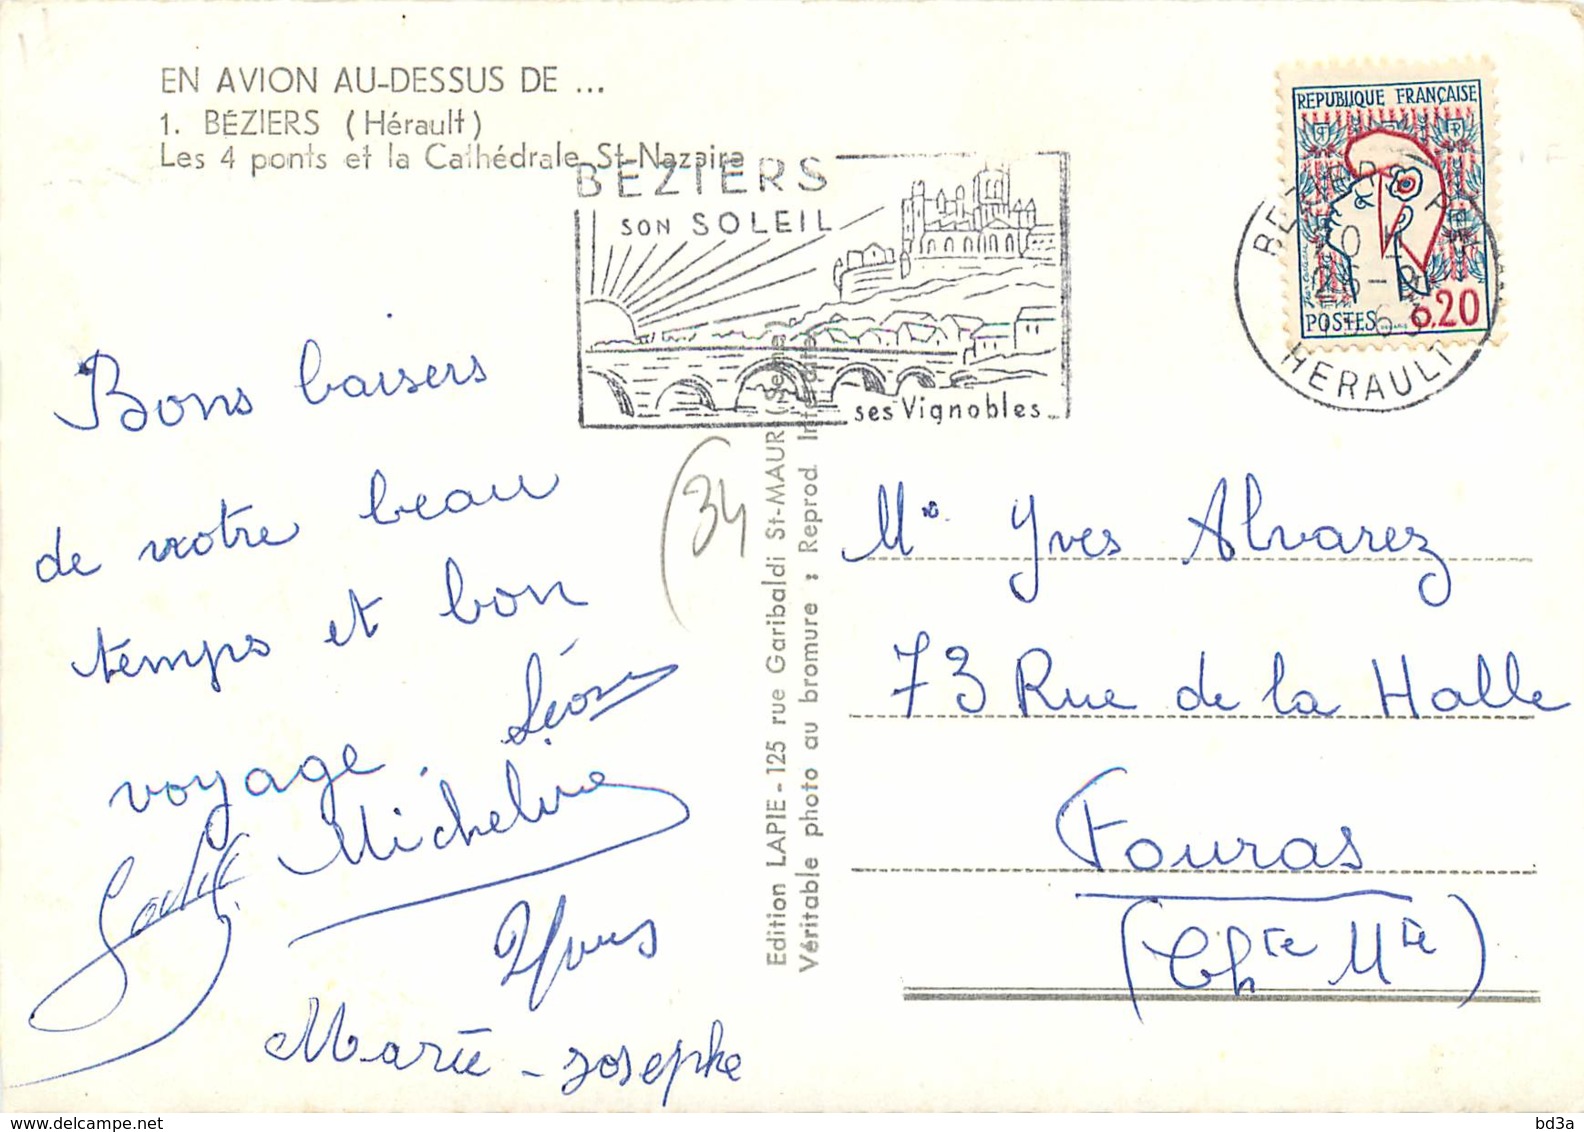 EN AVION AU-DESSUS DE ...
1. BÉZIERS (Hérault)
Les 4 ponts et la Cathédrale St-Nazaire
BEZIERS
SON SOLEIL
ses Vignobles
REPUBLIQUE FRANÇAISE
POSTES
0.20
HERAULT
Bons baisers
de votre beau
temps et bon
voyage.
Micheline
Marie-Josephe
(34
Edition LAPIE - 125 rue Garibaldi St-MAUR (Seine)
Véritable photo au bromure : Reprod Interdite
Yves Alvarez
73 Rue de la Halle
Fouras
(Chte Mte)
bd3a